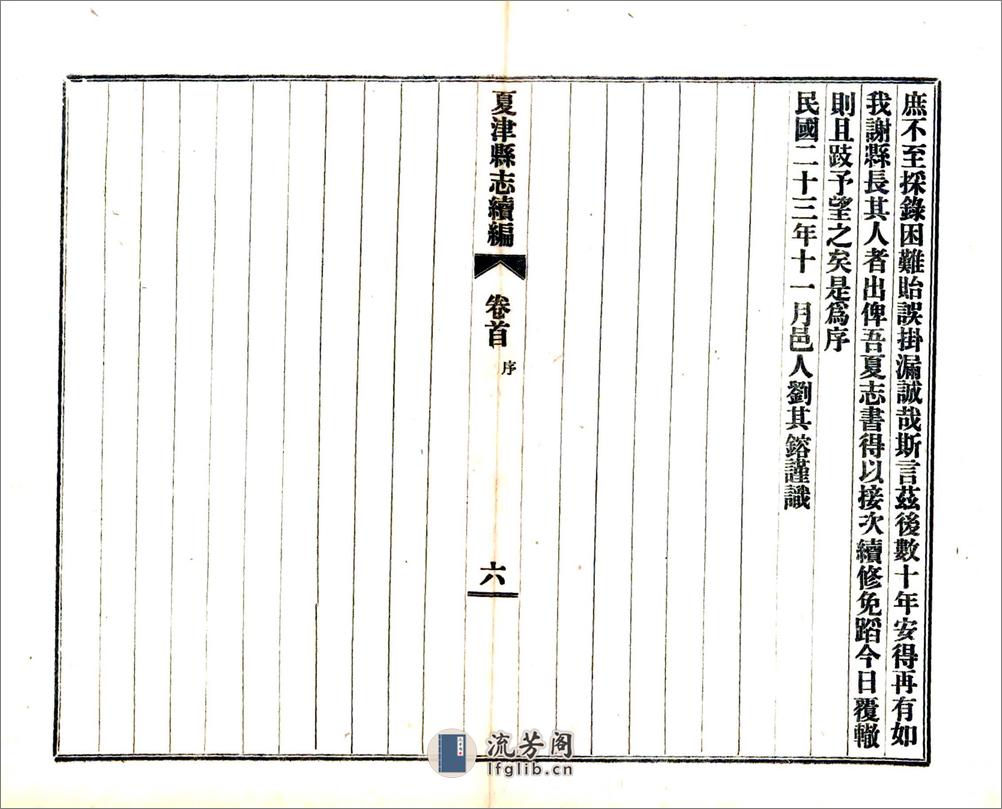 庶不至採錄困難貽誤掛漏誠哉斯言茲後數十年安得再有如
我謝縣長其人者出俾吾夏志書得以接次續修免蹈今日覆轍
則且跂予望之矣是爲序
民國二十三年十一月邑人劉其鎔謹識
夏津縣志續編
卷首
序
六
流芳阁
lfglib.cn